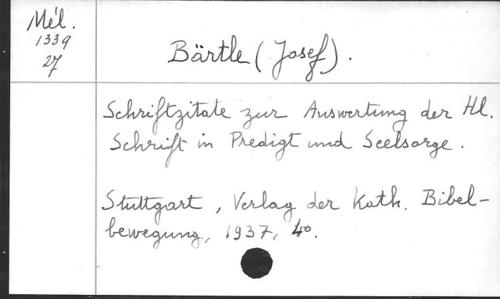 Mél.
1339
27
Bärtle (Josef).
Schriftzitate zur Auswertung der Hl.
Schrift in Predigt und Seelsorge.
Stuttgart, Verlag der Kath. Bibel-
bewegung, 1937, 4°.